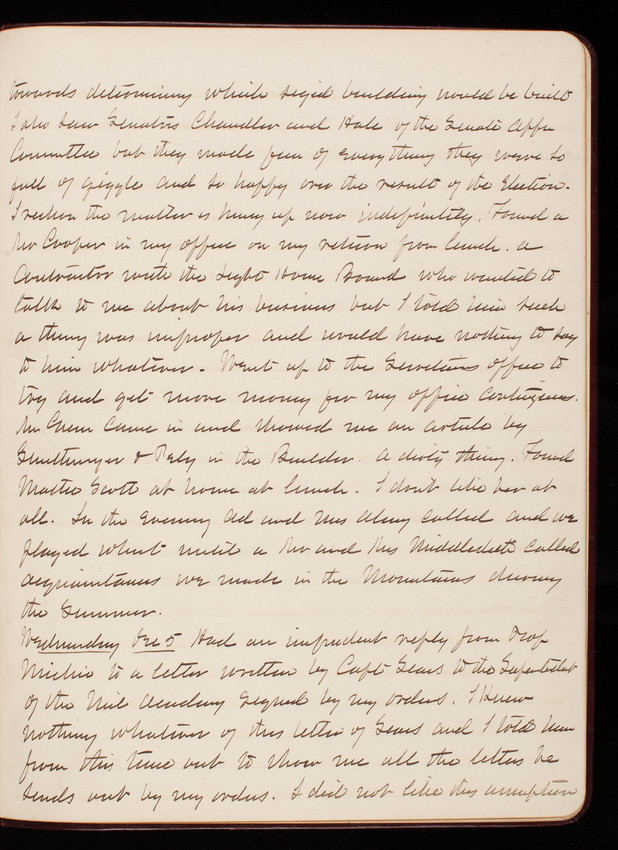 towards determining which sized building would be built
I also saw Senators Chandler and Hale of the Senate App
Committee but they made fun of everything they were so
full of giggle and so happy over the result of the Election.
I reckon the matter is hung up now indefinitely. Found a
Mr Cooper in my office on my return from lunch. a
Contractor with the Light House Board who wanted to
talk to me about his business but I told him such
a thing was improper and would have nothing to say
to him whatever. Went up to the Secretarys office to
try and get more money for my office Contingencies.
Mr Green came in and showed me an article by
Smithmeyer & Pelz in the Builder. A dirty thing. Found
Mattie Scott at home at lunch. I dont like her at
all. In the Evening Ad and Mrs Alexy called and we
played whist until a Mr and Mrs called
acquaintances we made in the Mountains during
the Summer.
Wednesday Dec 5 Had an impudent reply from Prof
Michie to a letter written by Capt Sears to the Supertdt
of the Mil Academy signed by my orders. I knew
nothing whatever of this letter of Sears and I told him
from this time out to show me all the letters he
sends out by my orders. I did not like this assumption